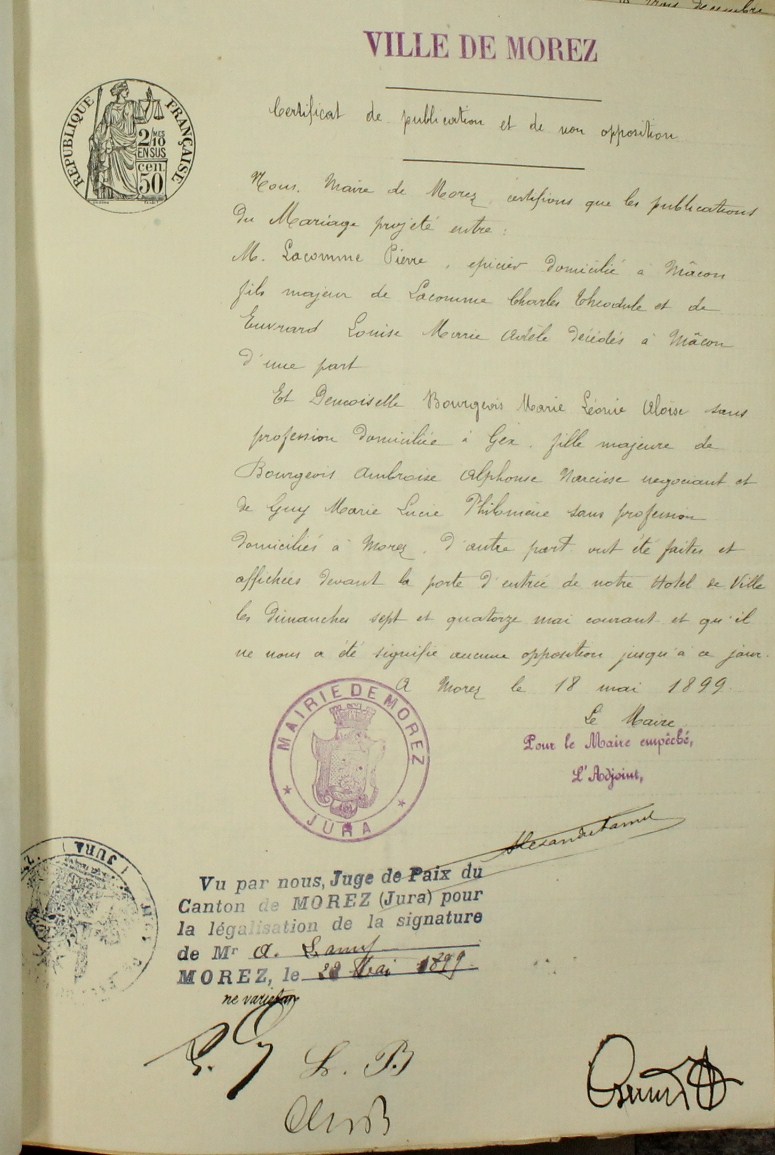 trois decembre
VILLE DE MOREZ
RÉPUBLIQUE FRANÇAISE
2/10 MES
EN SUS
50 cen.
Certificat de publication et de non opposition
Nous, Maire de Morez, certifions que les publications
du Mariage projeté entre :
M. Lacomme Pierre, epicier domicilié à Mâcon
fils majeur de Lacomme Charles Theodule et de
Euvrard Louise Marie Adèle décédés à Mâcon
d'une part
Et Demoiselle Bourgeois Marie Léonie Aloise sans
profession domiciliée à Gex, fille majeure de
Bourgeois Ambroise Alphonse Narcisse negociant et
de Guy Marie Lucie Philomène sans profession
domiciliés à Morez, d'autre part ont été faites et
affichées devant la porte d'entrée de notre Hotel de Ville
les dimanches sept et quatorze mai courant et qu'il
ne nous a été signifié aucune opposition jusqu'à ce jour.
A Morez le 18 mai 1899
Le Maire
MAIRIE DE MOREZ
JURA
Pour le Maire empêché,
L'Adjoint,
Vu par nous, Juge de Paix du
Canton de MOREZ (Jura) pour
la légalisation de la signature
de Mr A. Lamy
MOREZ, le 22 Mai 1899
ne varietur
L. B